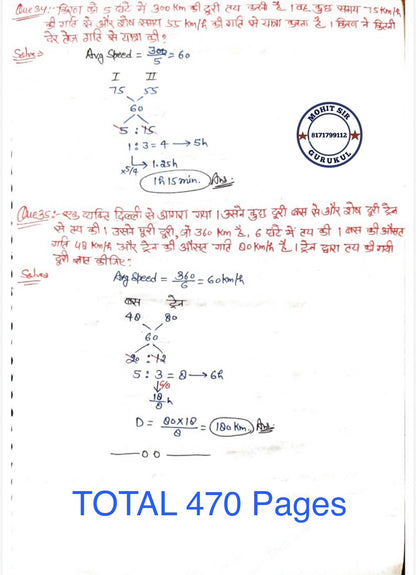 Que34:- किरण को 5 घंटे में 300 Km की दूरी तय करनी है । वह कुछ समय 75 Km/h
की गति से और शेष समय 55 Km/h की गति से यात्रा करता है । किरण ने कितनी
देर तेज गति से यात्रा की ?
Solve
Avg Speed = 300/5 = 60
I II
75 55
60
5 : 15
1 : 3 = 4 → 5h
×5/4 → 1.25h
1h 15 min. Ans:
MOHIT SIR
8171799112
GURUKUL
Que35:- एक व्यक्ति दिल्ली से आगरा गया । उसने कुछ दूरी बस से और शेष दूरी ट्रेन
से तय की । उसने पूरी दूरी, जो 360 Km है, 6 घंटे में तय की । बस की औसत
गति 48 Km/h और ट्रेन की औसत गति 80 Km/h है । ट्रेन द्वारा तय की गयी
दूरी ज्ञात कीजिए:
Solve
Avg Speed = 360/6 = 60 km/h
बस ट्रेन
48 80
60
20 : 12
5 : 3 = 8 → 6h
18/8 h
D = 80×18/8 = 180 Km. Ans:
TOTAL 470 Pages